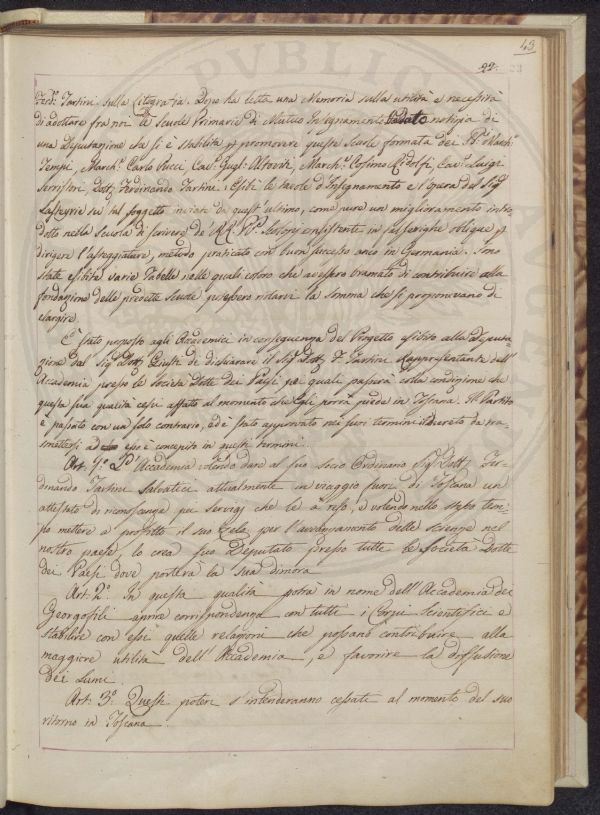 43
22.
Ferd.º Tartini sulla Litografia. Dopo ha letta una Memoria sulla utilità e necessità
di adottare fra noi le Scuole Primarie di Mutuo Insegnamento notizia di
una Deputazione che si è stabilita p promovere queste Scuole formata dei SS.i March.i
Tempi, March.e Carlo Pucci, Cav.e Gugl.o Altoviti, March.e Cosimo Ridolfi, Cav.e Luigi
Serristori, Dott.e Ferdinando Tartini. Esibì le tavole d'Insegnamento e l'opera del Sig.e
Lasteyrie su tal soggetto inviate da quest'ultimo, come pure un miglioramento intro
dotto nella Scuola di scrivere de' RR. PP. consistente in falserighe oblique p
dirigere l'asteggiatura, metodo praticato con buon successo anco in Germania. Sono
state esibite varie Tabelle nelle quali coloro che avessero bramato di contribuire alla
fondazione delle predette Scuole potessero notarvi la somma che si proponevano di
elargire.
E' stato proposto agli Accademici in conseguenza del Progetto esibito alla Deputa-
zione dal Sig.e Dott.e Giusti de dichiarare il Sig.e Dott.e F. Tartini Rappresentante dell'
Accademia presso le Società Dotte dei Paesi pei quali passerà colla condizione che
questa sua qualità cessi affatto al momento che Egli porrà piede in Toscana. Il Partito
è passato con un solo contrario, ed è stato approvato nei suoi termini il decreto da tra-
smettersi ad esso è concepito in questi termini.
Art. 1.º L'Accademia volendo dare al suo socio Ordinario Sig.e Dott.e Fer-
dinando Tartini Salvatici attualmente in viaggio fuori di Toscana un
attestato di riconoscenza pei servigj che le à reso, e volendo nello stesso tem-
po mettere a profitto il suo Zelo per l'avanzamento delle scienze nel
nostro paese, lo crea suo Deputato presso tutte le Società Dotte
dei Paesi dove porterà la sua dimora.
Art. 2.º In questa qualità potrà in nome dell'Accademia dei
Georgofili aprire corrispondenza con tutti i Corpi Scientifici e
stabilire con essi quelle relazioni che possano contribuire alla
maggiore utilità dell'Accademia, e favorire la diffusione
dei Lumi.
Art. 3.º Questi poteri s'intenderanno cessati al momento del suo
ritorno in Toscana.